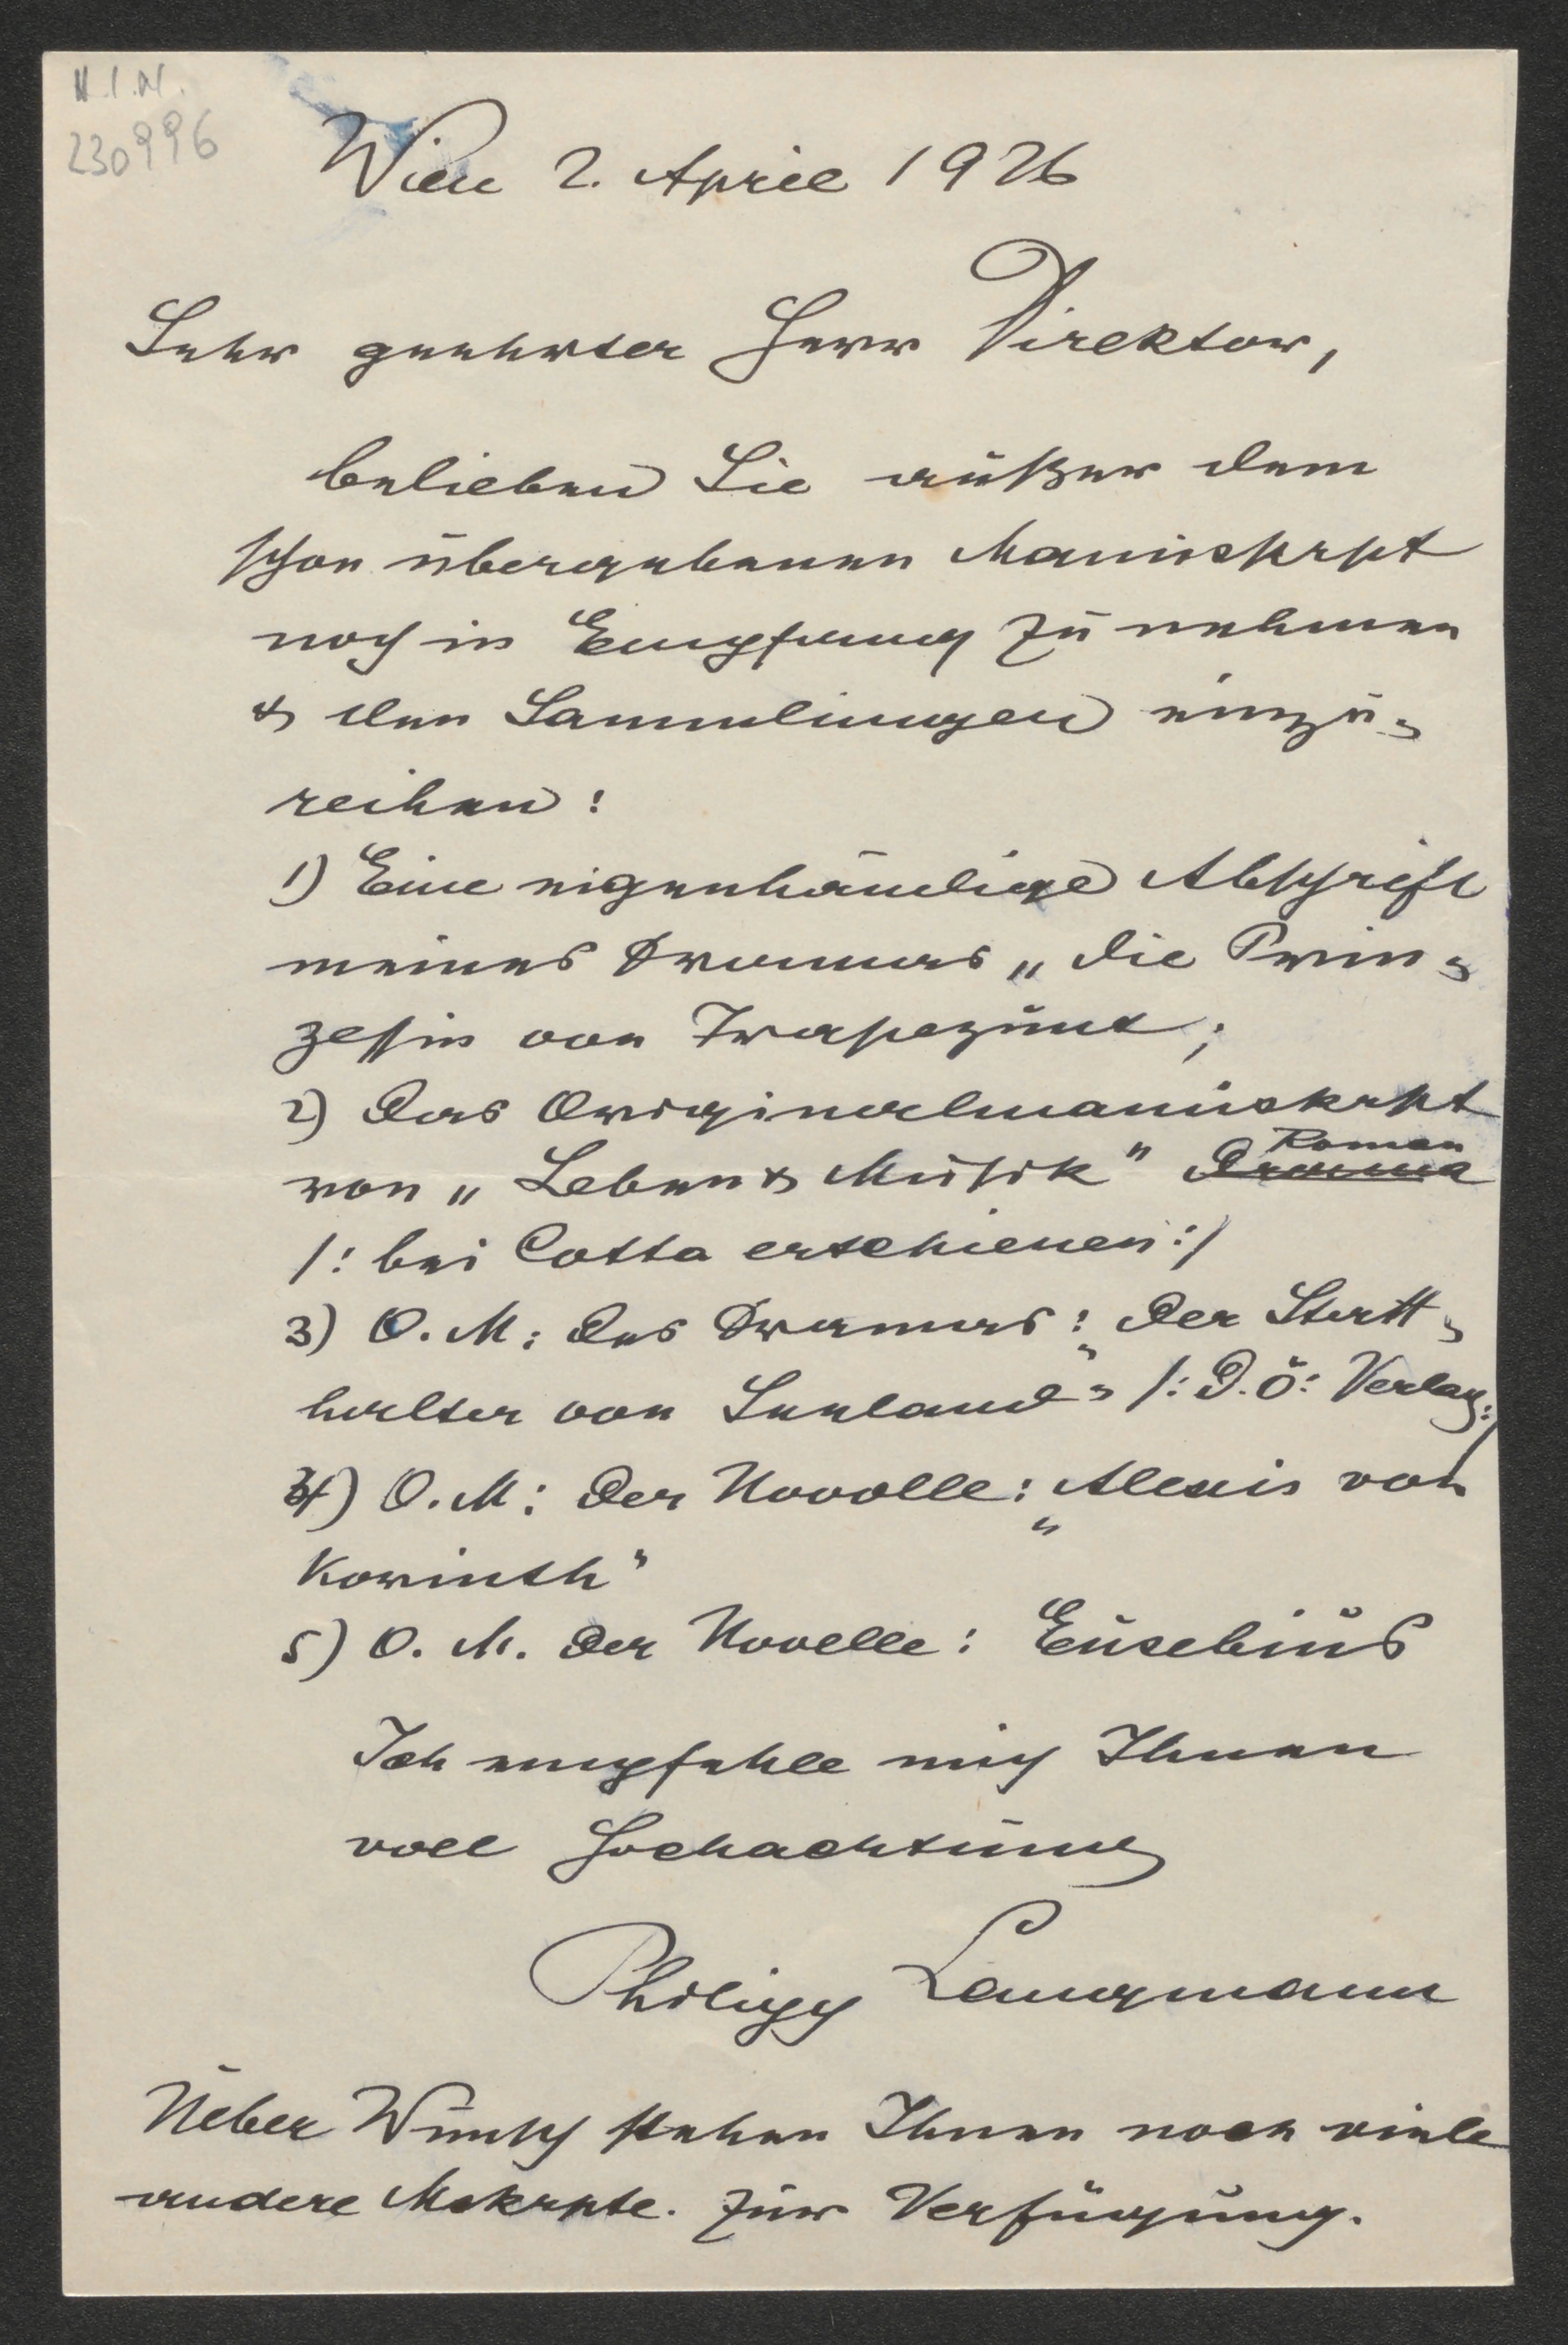 H.I.N.
230996
Wien 2. April 1926
Sehr geehrter Herr Direktor,
belieben Sie außer dem
schon übergebenen Manuskrpt
noch in Empfang zu nehmen
& den Sammlungen einzu-
reihen:
1) Eine eigenhändige Abschrift
meines Dramas „die Prin-
zessin von Trapezunt;
2) das Originalmanuskrpt
von „Leben & Musik" Drama Roman
/: bei Cotta erschienen :/
3) O. M: des Dramas: „Der Statt-
halter von Seeland" /: D. Ö: Verlag :/
4) O. M: der Novelle: „Alexis von
Korinth"
5) O. M. der Novelle: Eusebius
Ich empfehle mich Ihnen
voll Hochachtung
Philipp Langmann
Ueber Wunsch stehen Ihnen noch viele
andere Mskrpte. zur Verfügung.